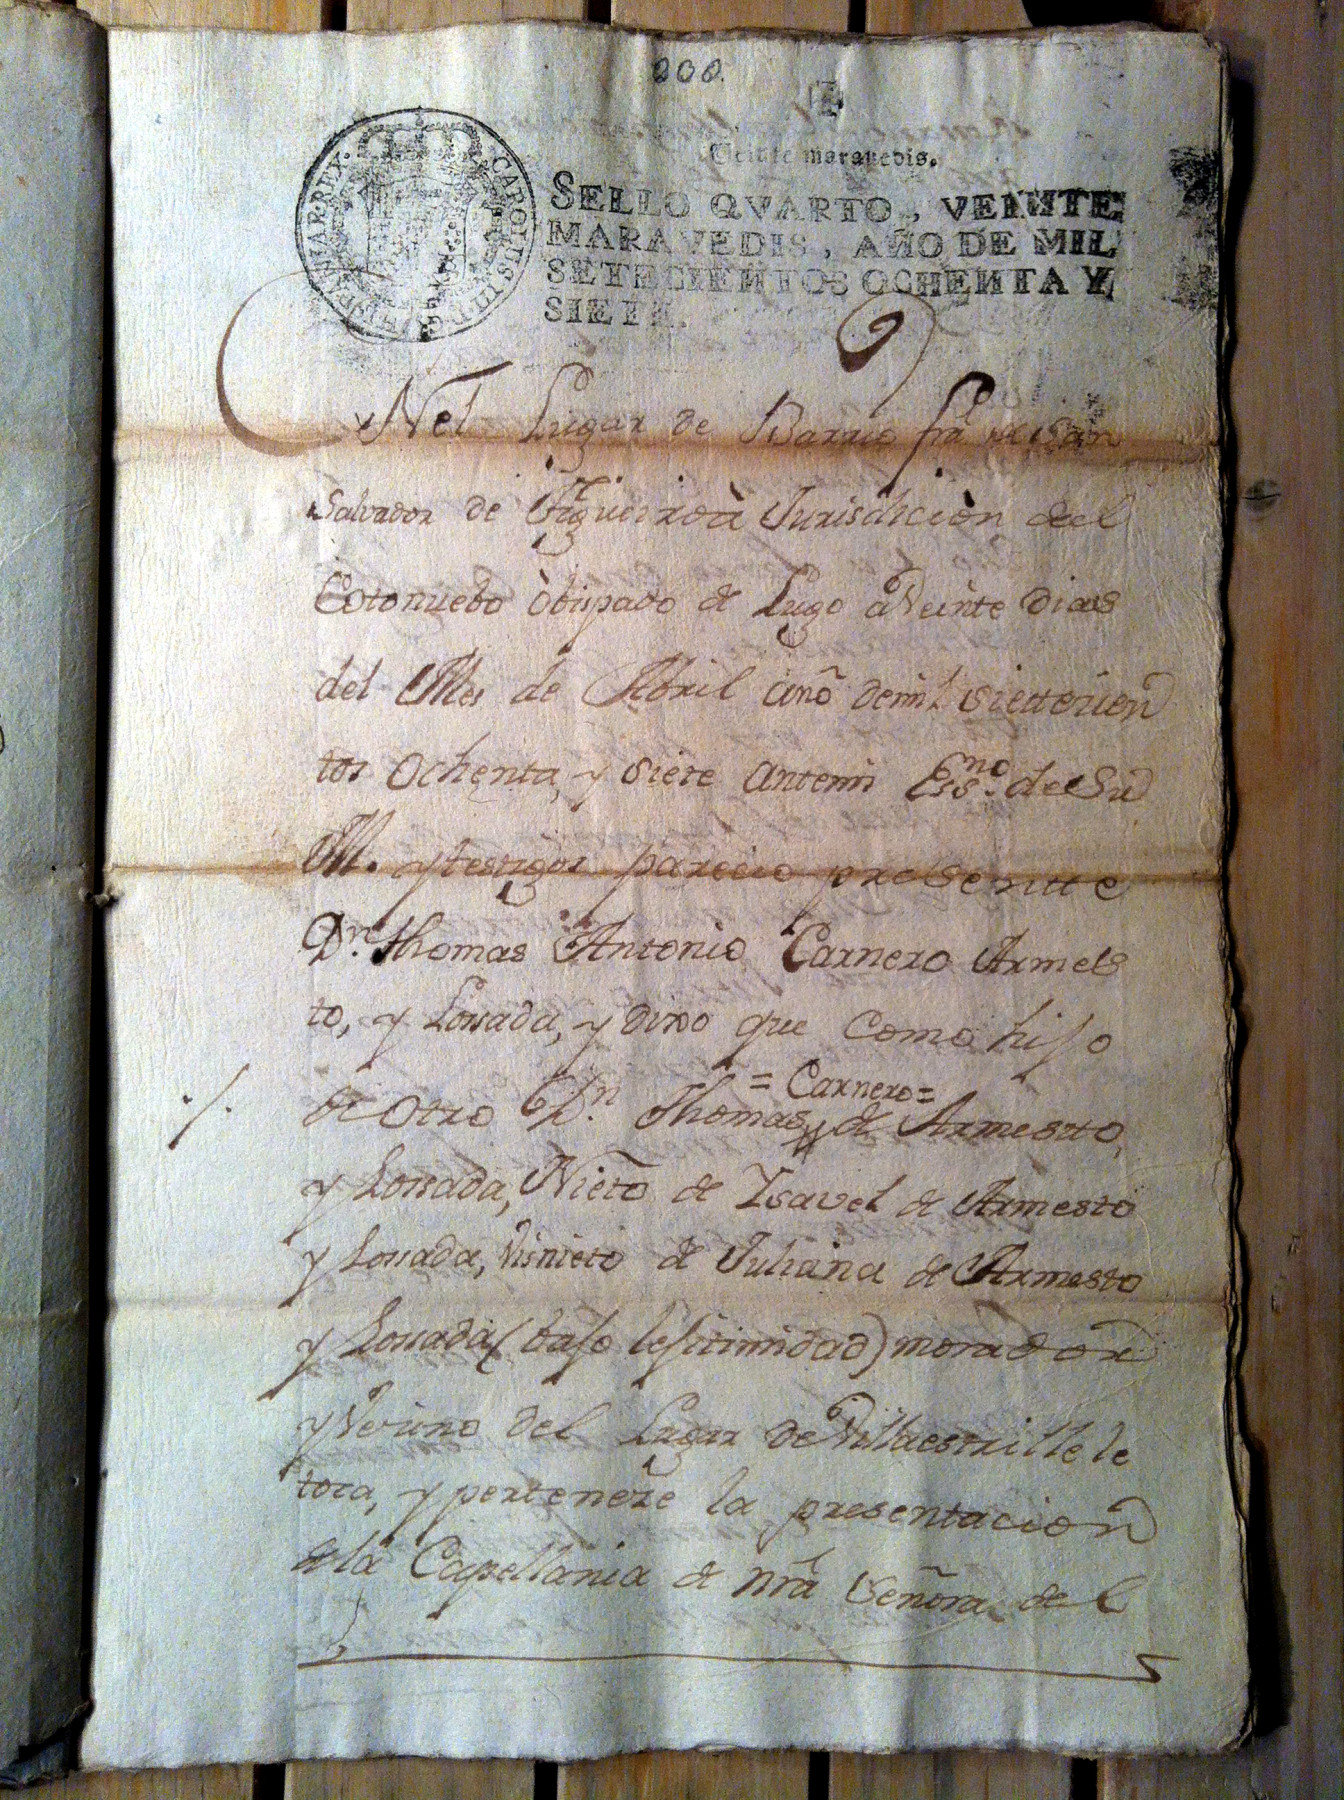 000.
Veinte maravedis.
CAROLUS III D G HISPANIAR REX.
SELLO QVARTO, VEINTE
MARAVEDIS, AÑO DE MIL
SETECIENTOS OCHENTA Y
SIETE.
Nel Lugar de Barrio frã de San
Salvador de Figueiroà Jurisdiciòn del
Cotonuebo òbispado de Lugo à Veinte dias
del Mes de Abril anõ demil sietecien
tos Ochenta, y siete antemi Essno. de Su
M. y testigos parecio presentte
Dn. Thomas Antonio Carnero Armes
to, y Lossada, y dixo que como hijo
= Carnero =
de Otro Dn. Thomas de Armestto,
y Lossada, Nieto de Ysavel de Armesto
y Lossada, Visnieto de Juliana de Armesto
y Lossada (bajo lejitimidad) morador
y Vecino del Lugar de Villaestrille le
toca, y perteneze la presentacion
de la Capellania de nrã Señora del